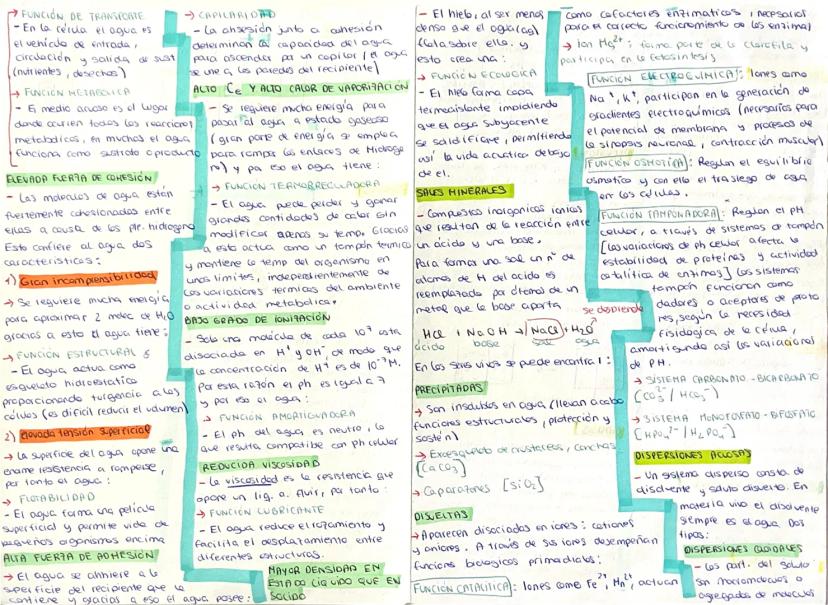 → FUNCIÓN DE TRANSPORTE
- En la célula el agua es
el vehículo de entrada,
circulación y salida de sust
(nutrientes, desechos)
→ FUNCIÓN METABÓLICA
- El medio acuoso es el lugar
donde ocurren todas las reaccions
metabólicas, en muchas el agua
funciona como sustrato o producto
ELEVADA FUERZA DE COHESIÓN
- Las moléculas de agua están
fuertemente cohesionadas entre
ellas a causa de los ptr. hidrógeno
Esto confiere al agua dos
características:
1) Gran incomprensibilidad
→ Se requiere mucha energía
para aproximar 2 moléc de H₂O
gracias a esto el agua tiene:
→ FUNCIÓN ESTRUCTURAL
- El agua actúa como
esqueleto hidrostático
proporcionando turgencia a las
células (es difícil reducir el volumen)
2) elevada tensión superficial
→ La superficie del agua opone una
enorme resistencia a romperse,
por tanto el agua:
→ FLOTABILIDAD
- El agua forma una película
superficial y permite vida de
pequeños organismos encima
ALTA FUERZA DE ADHESIÓN
→ El agua se adhiere a la
superficie del recipiente que la
contiene y gracias a eso el agua posee:
→ CAPILARIDAD
- La adhesión junto a cohesión
determinan la capacidad del agua
para ascender por un capilar (el agua
se une a las paredes del recipiente)
ALTO Ce Y ALTO CALOR DE VAPORIZACIÓN
- Se requiere mucha energía para
pasar al agua a estado gaseoso
(gran parte de energía se emplea
para romper los enlaces de Hidróge
no) y por eso el agua tiene:
→ FUNCIÓN TERMORREGULADORA
- El agua puede perder y ganar
grandes cantidades de calor sin
modificar apenas su temp. Gracias
a esto actúa como un tampón térmico
y mantiene la temp del organismo en
unos límites, independientemente de
las variaciones térmicas del ambiente
o actividad metabólica.
BAJO GRADO DE IONIZACIÓN
- Solo una molécula de cada 10⁷ está
disociada en H⁺ y OH⁻, de modo que
la concentración de H⁺ es de 10⁻⁷ M.
Por esta razón el ph es igual a 7
y por eso el agua:
→ FUNCIÓN AMORTIGUADORA
- El ph del agua es neutro, lo
que resulta compatible con ph celular
REDUCIDA VISCOSIDAD
- La viscosidad es la resistencia que
opone un líq. a fluir, por tanto:
→ FUNCIÓN LUBRICANTE
- El agua reduce el rozamiento y
facilita el desplazamiento entre
diferentes estructuras.
MAYOR DENSIDAD EN
ESTADO LÍQUIDO QUE EN
SÓLIDO
- El hielo, al ser menos
denso que el agua (aq)
flota sobre ella. y
esto crea una:
→ FUNCIÓN ECOLÓGICA
- El hielo forma capa
termoaislante impidiendo
que el agua subyacente
se solidifique, permitiendo
así la vida acuática debajo
de él.
SALES MINERALES
- Compuestos inorgánicos iónicos
que resultan de la reacción entre
un ácido y una base.
Para formar una sal un nº de
átomos de H del ácido es
reemplazado por átomos de un
metal que la base aporta
se desprende
HCl + NaOH → NaCl + H₂O
ácido base sal agua
En los seres vivos se puede encontrar:
PRECIPITADAS
→ Son insolubles en agua (llevan a cabo
funciones estructurales, protección y
sostén)
→ Exoesqueleto de crustáceos, conchas
[CaCO₃]
→ Caparazones [SiO₂]
DISUELTAS
→ Aparecen disociadas en iones: cationes
y aniones. A través de sus iones desempeñan
funcions biológicas primordiales:
FUNCIÓN CATALÍTICA: Iones como Fe²⁺, Mn²⁺, actúan
como cofactores enzimáticos (necesarios
para el correcto funcionamiento de las enzimas)
→ Ion Mg²⁺: forma parte de la clorofila y
participa en la fotosíntesis
FUNCIÓN ELECTROQUÍMICA: Iones como
Na⁺, K⁺, participan en la generación de
gradientes electroquímicos (necesarios para
el potencial de membrana y procesos de
la sinapsis neuronal, contracción muscular)
FUNCIÓN OSMÓTICA: Regulan el equilibrio
osmótico y con ello el trasiego de agua
en las células.
FUNCIÓN TAMPONADORA: Regulan el pH
celular, a través de sistemas de tampón
[las variaciones de ph celular afecta la
estabilidad de proteínas y actividad
catalítica de enzimas] Los sistemas
tampón funcionan como
dadores o aceptores de proto
nes, según la necesidad
fisiológica de la célula,
amortiguando así las variaciones
de PH.
→ SISTEMA CARBONATO - BICARBONATO
[CO₃²⁻ / HCO₃⁻]
→ SISTEMA MONOFOSFATO - BIFOSFATO
[HPO₄²⁻ / H₂PO₄⁻]
DISPERSIONES ACUOSAS
- Un sistema disperso consta de
disolvente y soluto disuelto. En
materia viva el disolvente
siempre es el agua. Dos
tipos:
DISPERSIONES COLOIDALES
- Las part. del soluto
son macromoléculas o
agregados de moléculas